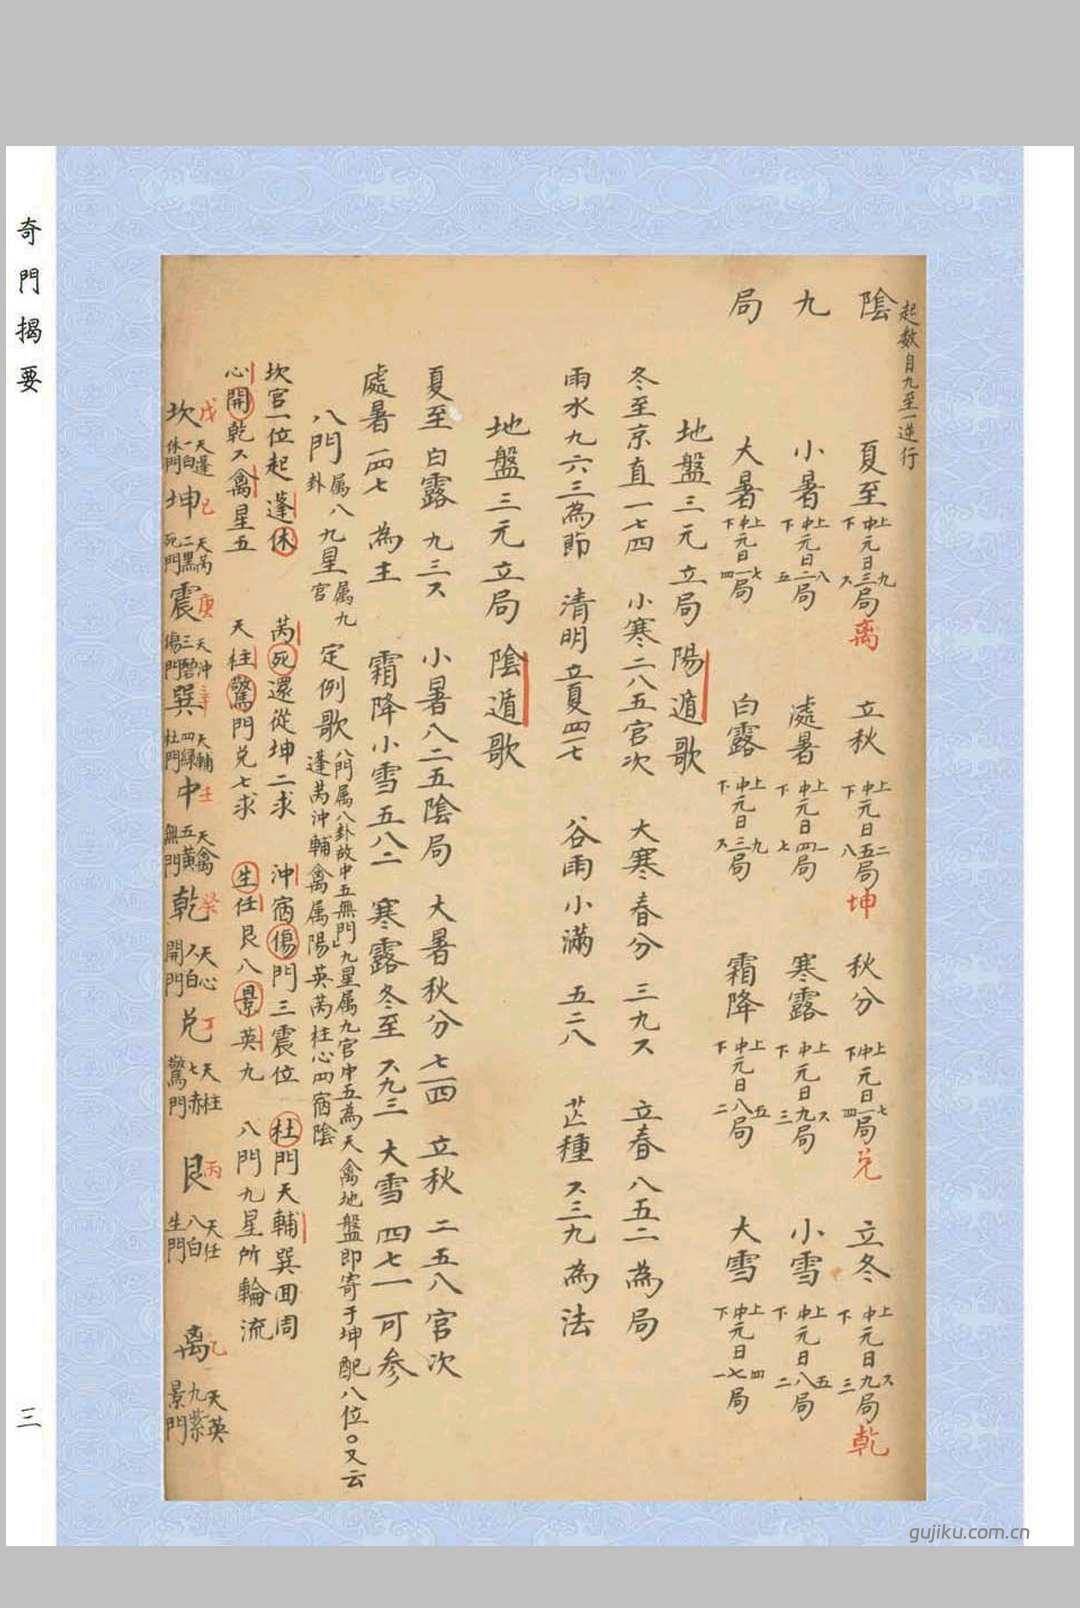 奇門揭要
三
陰九局
起數自九至一逆行
夏至 上中下元日九三六局 離 立秋 上中下元日二五八局 坤 秋分 上中下元日七一四局 兌 立冬 上中下元日六九三局 乾
小暑 上中下元日八二五局 處暑 上中下元日一四七局 寒露 上中下元日六九三局 小雪 上中下元日五八二局
大暑 上中下元日七一四局 白露 上中下元日九三六局 霜降 上中下元日五八二局 大雪 上中下元日四七一局
地盤三元立局 陽遁歌
冬至京直一七四 小寒二八五宮次 大寒春分三九六 立春八五二為局
雨水九六三為節 清明立夏四一七 谷雨小滿五二八 芒種六三九為法
地盤三元立局 陰遁歌
夏至白露九三六 小暑八二五陰局 大暑秋分七一四 立秋二五八宮次
處暑一四七為主 霜降小雪五八二 寒露冬至六九三 大雪四七一可參
八門属八卦 九星属九宮 定例歌 八門属八卦故中五無門九星属九宮中五為天禽地盤即寄于坤配八位○又云
蓬芮沖輔禽属陽英芮柱心四宿陰
坎宮一位起蓬休 芮死還從坤二求 沖宿傷門三震位 杜門天輔巽囬周
心開乾六禽星五 天柱驚門兌七求 生任艮八景英九 八門九星所輪流
坎 戊 天蓬 一白 休門
坤 己 天芮 二黑 死門
震 庚 天沖 三碧 傷門
巽 辛 天輔 四綠 杜門
中 壬 天禽 五黃 無門
乾 癸 天心 六白 開門
兌 丁 天柱 七赤 驚門
艮 丙 天任 八白 生門
離 乙 天英 九紫 景門
gujiku.com.cn